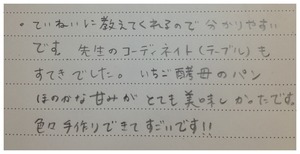 ・ていねいに教えてくれるので分かりやすい
です。先生のコーディネイト(テーブル)も
すてきでした。いちご酵母のパン
ほのかな甘みがとても美味しかったです。
色々手作りできてすごいです!!